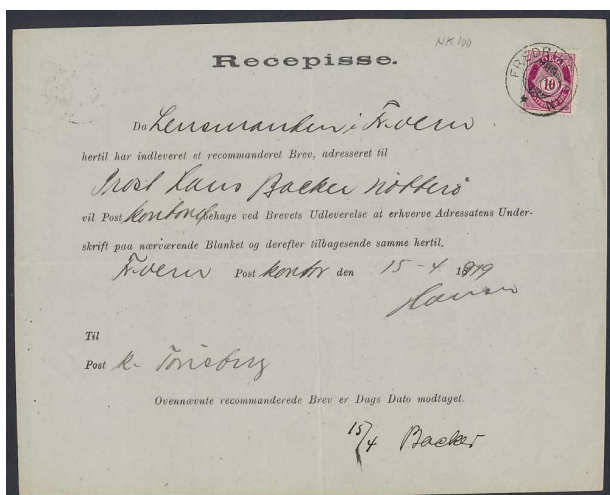 NK 100
Recepisse.
FREDRI
10
Da Lensmanden i Fr.værn
hertil har indleveret et recommanderet Brev, adresseret til
Provst Hans Backer Nøtterø
vil Postkontoret behage ved Brevets Udleverelse at erhverve Adressatens Under-
skrift paa nærværende Blanket og derefter tilbagesende samme hertil.
Fr.værn Postkontor den 15-4 1919
Til
Post k. Tønsberg
Ovennævnte recommanderede Brev er Dags Dato modtaget.
15/4 Backer